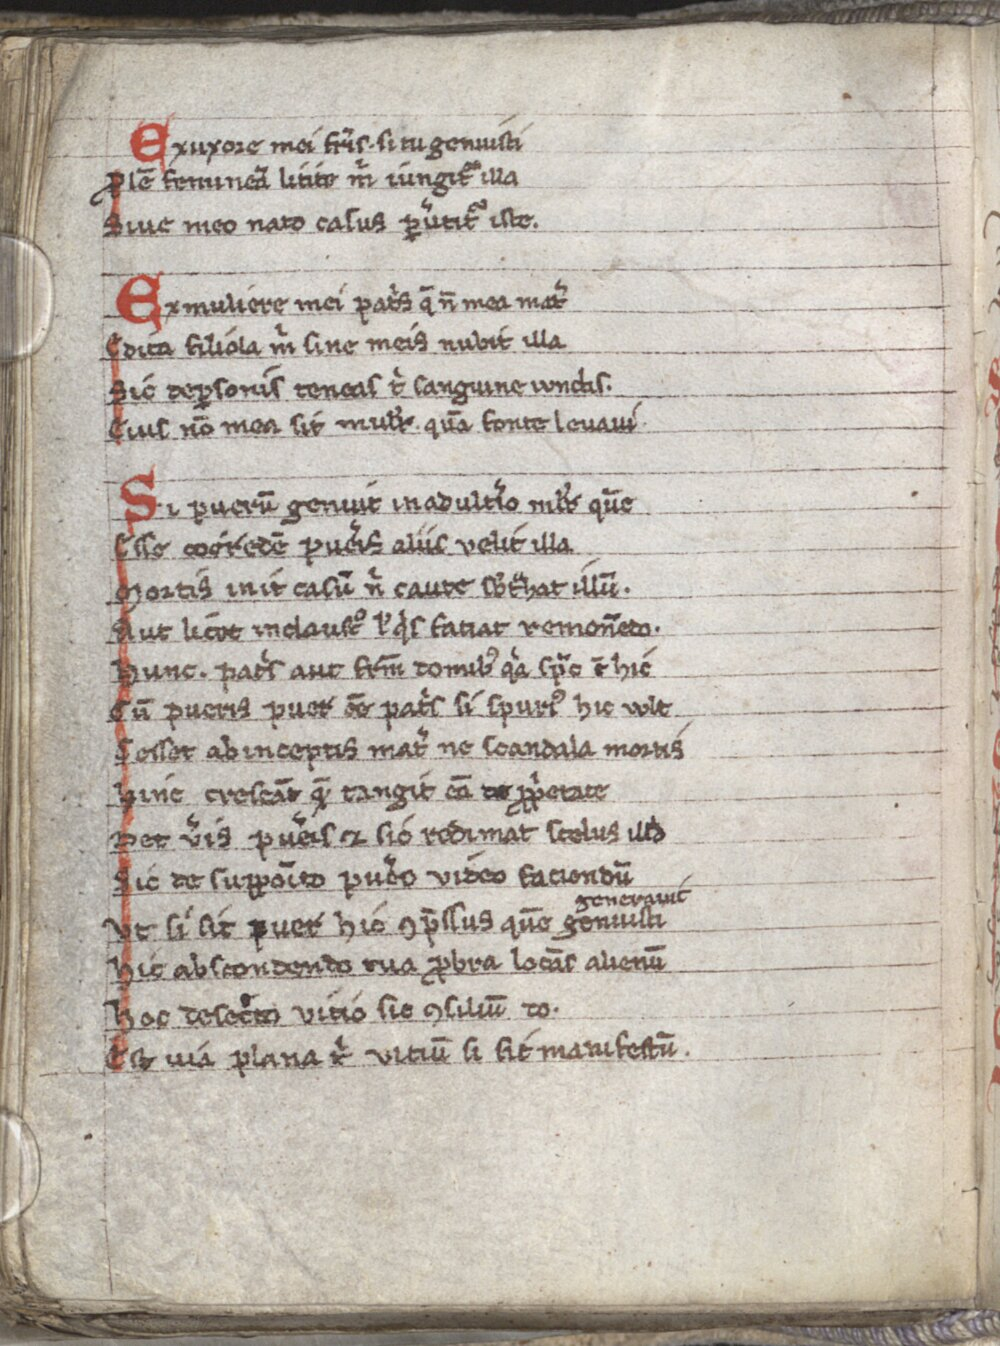 Ex uxore mei fr̄is. si tu genuisti
ꝓlē femineā licite m̄ iungit᷑ illa
Siue meo nato casus ꝑmittit᷑ iste.
Ex muliere mei patis q̄ n̄ mea mat̉
Edita filiola m̄ sine meis nubit illa
Sic de ꝑsonis teneas t̉ sanguine iunctis.
Cuius nō mea sit mulr̉. quā fonte leuaui.
Si puerū genuit in adulťio mlr̉ quē
Esse coh̉edē puęis aliis velit illa
Mortis init casū n̄ caute illū.
Aut licēt in claustꝰ fatiat remonēdo.
Hunc. patis aut fr̄m domibꝰ qͣ hic
Cū pueris puer patis si spurꝰ hic vult
Cesset ab inceptis mat̉ ne scandala mortis
Hinc crescāt tangit eā de ꝓp̉etate
Det v̉is pueris ⁊ sic redimat scelus illd
Sic de supp̄oito pủo video faciendū
generauit
Vt si sit puer hic ꝯp̄ssus quē genuisti
Hic abscondendo tua ꝓbra locās alienū
Hoc de sec̉to vitio sic ꝯsiliū do.
Est uia plana t̉ vitiū si sit manifestū.